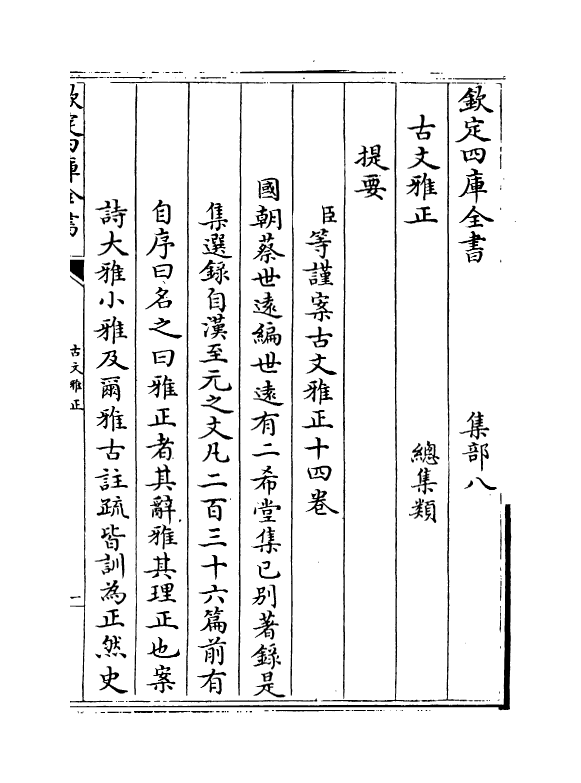 欽定四庫全書 集部八
古文雅正 總集類
提要
臣等謹案古文雅正十四卷
國朝蔡世遠編世遠有二希堂集已别著録是
集選録自漢至元之文凡二百三十六篇前有
自序曰名之曰雅正者其辭雅其理正也案
詩大雅小雅及爾雅古註疏皆訓為正然史
欽定四庫全書
古文雅正
一